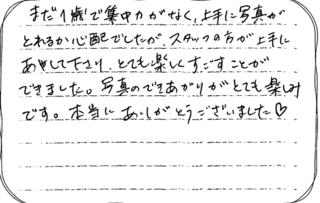 まだ1歳で集中力がなく、上手に写真が
とれるか心配でしたが、スタッフの方が上手に
あやして下さり、とても楽しくすごすことが
できました。写真のできあがりがとても楽しみ
です。本当にありがとうございました♡